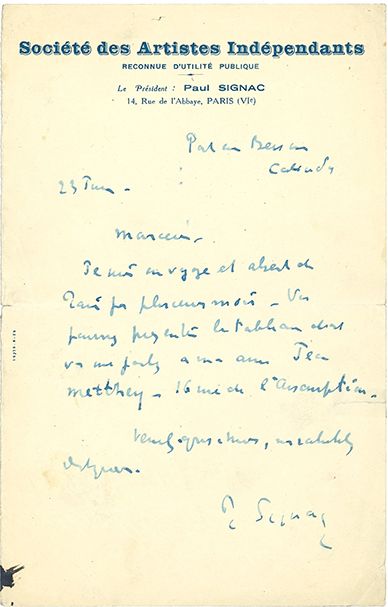 Société des Artistes Indépendants
RECONNUE D'UTILITÉ PUBLIQUE
Le Président : Paul SIGNAC
14, Rue de l'Abbaye, PARIS (VIe)
Port en Bessin
Calvados
23 Juin -
Monsieur -
Je suis en voyage et absent de
Paris pr plusieurs mois - Vs
pourrez présenter le tableau dont
vs me parlez à mon ami
Metthey - 16 rue de l'Assomption.
Veuillez agréer
P Signac